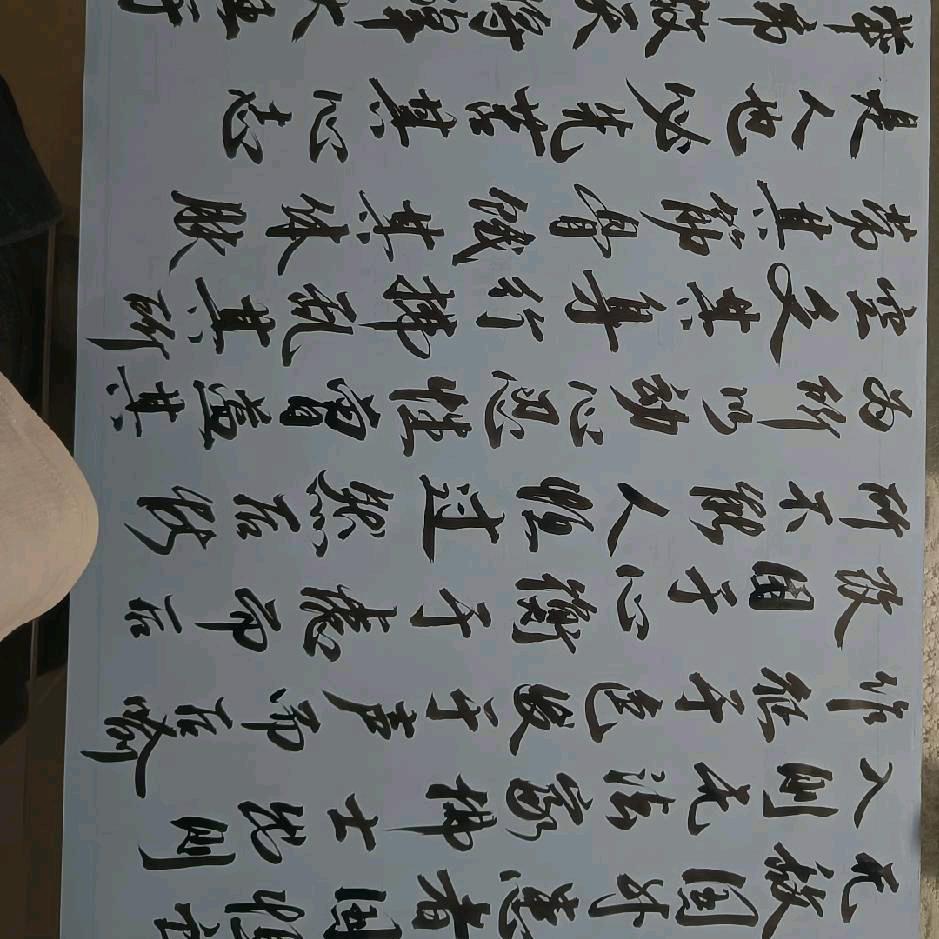 故天将降大任于
是人也必先苦其心志
劳其筋骨饿其体肤
空乏其身行拂乱其所
为所以动心忍性曾益其
所不能人恒过然后能
改困于心衡于虑而后
作征于色发于声而后喻
入则无法家拂士出则
无敌国外患者国恒亡